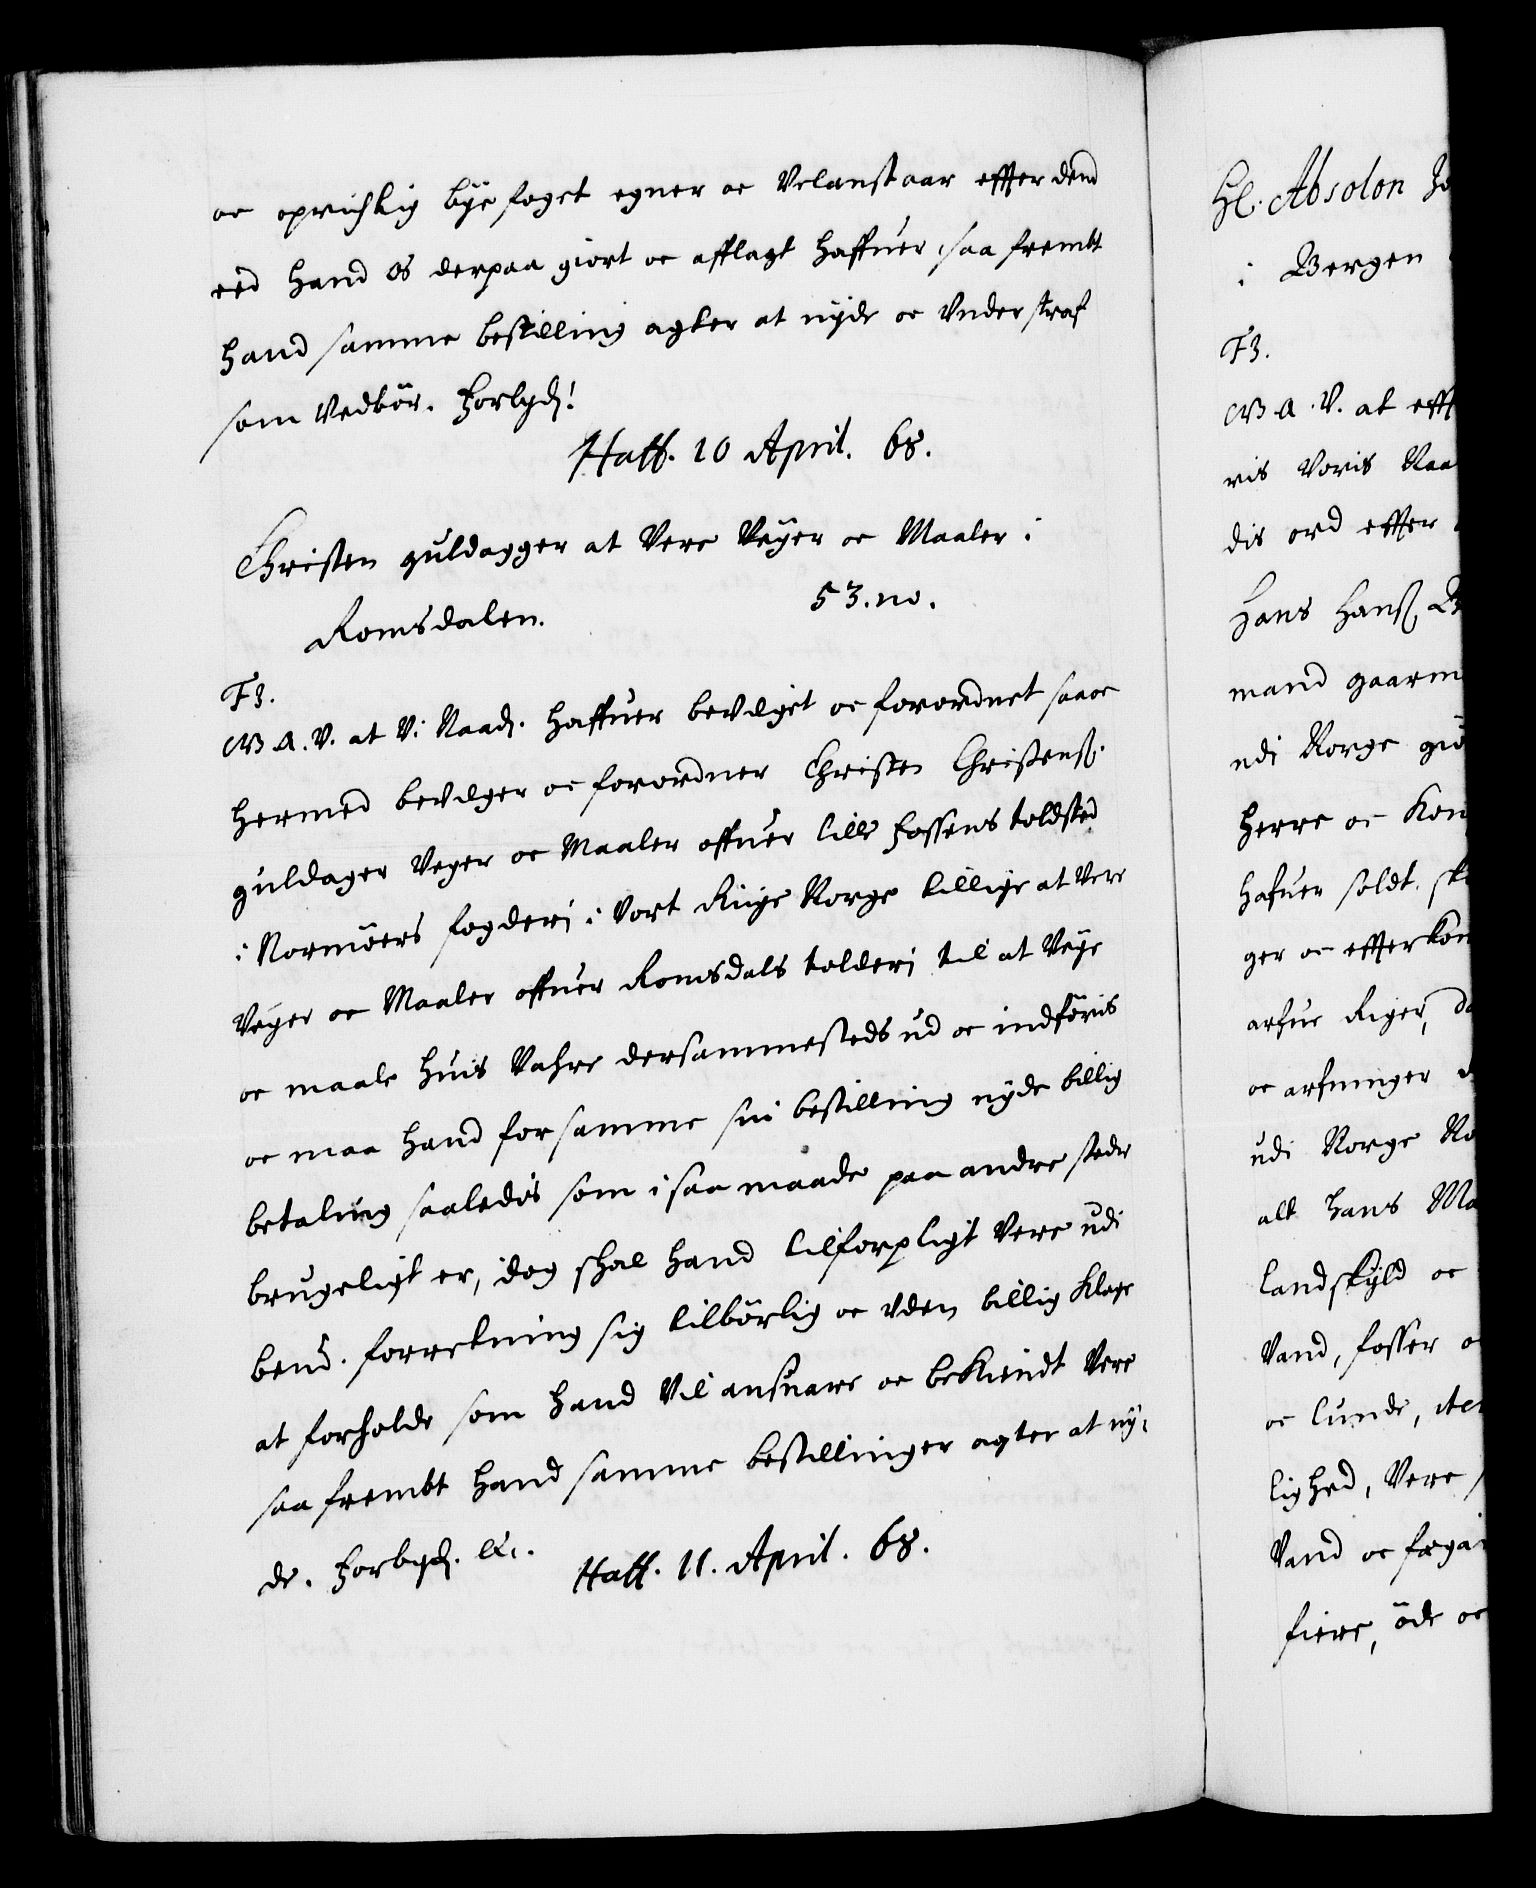 oc oprichtig byefoget egner oc Velanstaar effter dend
eed hand os derpaa giort oc afflagt haffuer, saa frembt
hand samme bestilling agter at nyde oc Vnder straf
som Vedbör. Forbyd!
Haff. 10 April. 68.
Christen guldagger at Vere Veyer oc Maaler i
Romsdalen.
53. no.
F3.
G A. V. at Vi Naad. haffuer bevilget oc forordnet saa oc
hermed bevilger oc forordner Christen Christens.
guldager Veyer oc Maaler offuer lille Fossens toldsted
i Normöers fogderi i Vort Riige Norge tillige at Vere
Veyer oc Maaler offuer Romsdals tolderi til at Veye
oc maale huis Vahre dersammesteds ud oc indföris
oc maa hand for samme sin bestilling nyde billig
betaling saaledis som i saa maade paa andre steder
brugeligt er, dog skal hand tilforpligt Vere udi
bend. forretning sig tilbörlig oc Vden billig klage
at forholde som hand Vil ansuare oc bekiendt Vere
saa frembt hand samme bestillinger agter at ny-
de. Forbyd. &c.
Haff. 11. April. 68.
Hl. Absolon
i Bergen
F3.
G A. V. at eff
ris Voris Naa
dis ord effter
Hans Hans.
mand gaarm
udi Norge giö
Herre oc Kon
hafuer soldt, sk
ger oc efferkom
arfue Riger, da
oc arfuinger
udi Norge No
alt hans Ma
landskyld oc
Vand, fosser o
oc lunde, item
lighed, Vere
Vand oc fega
fiere, öde oc